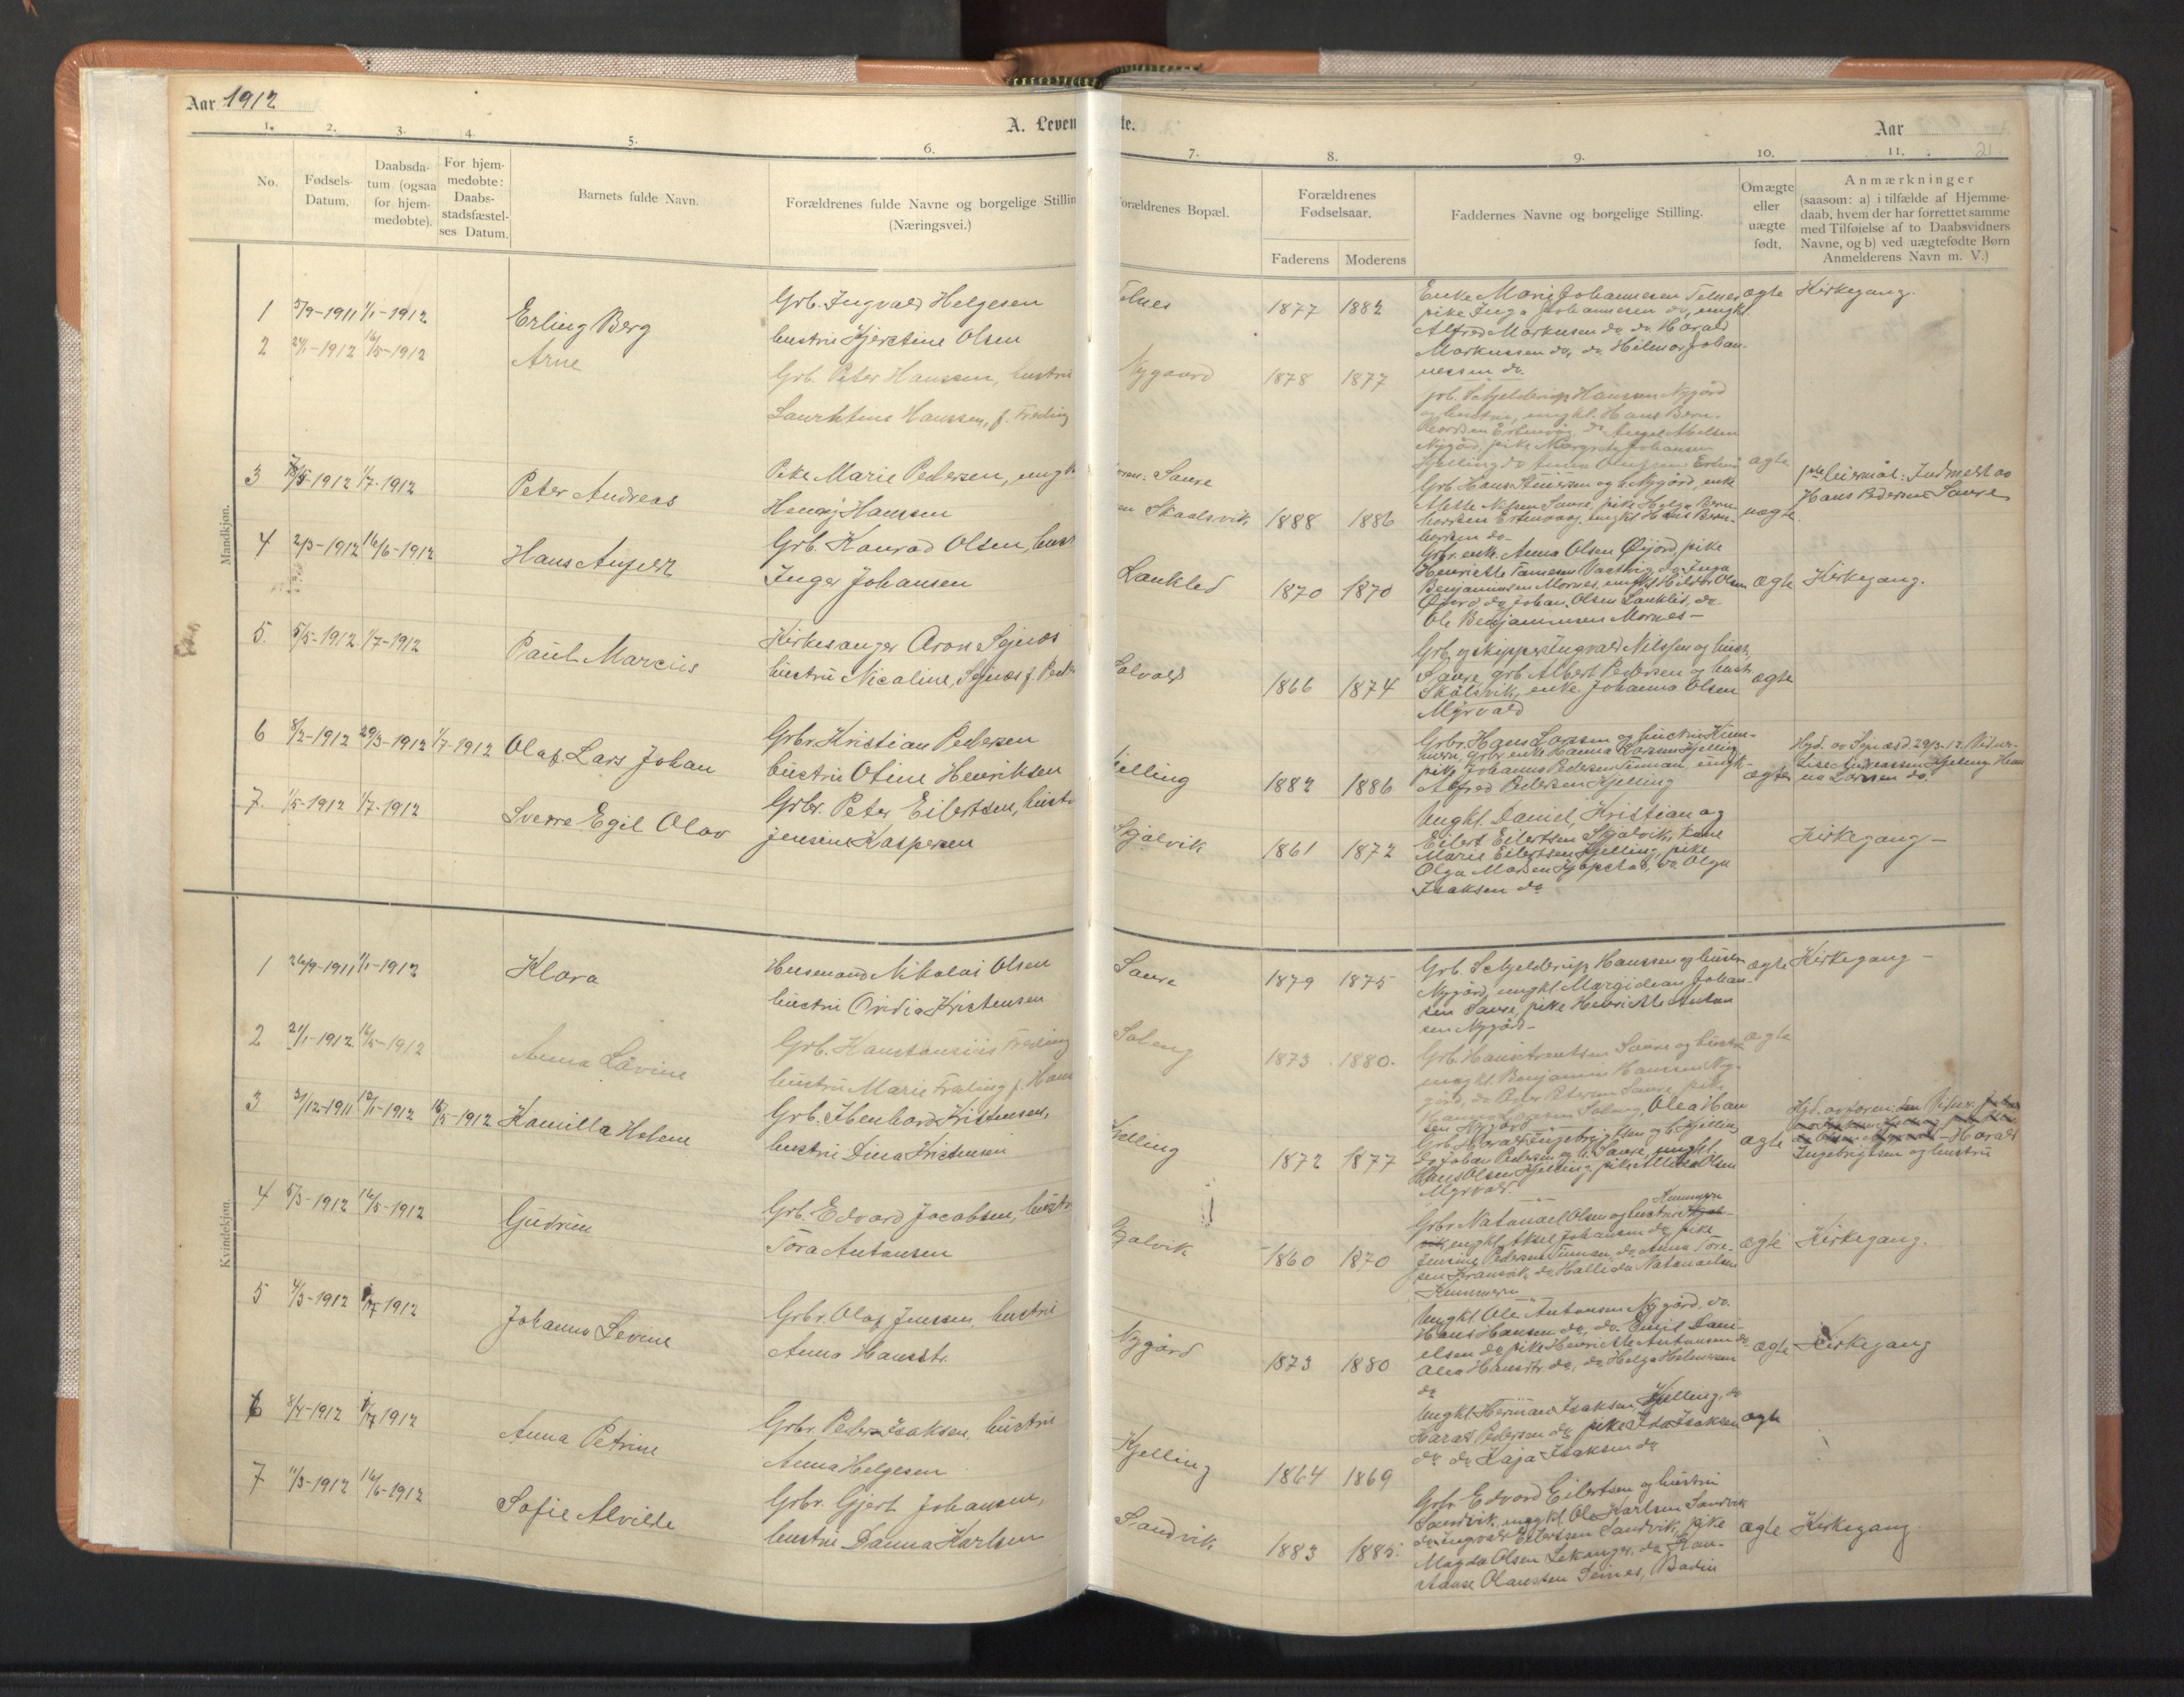 Aar 1912
A. Leven
te.
Aar
21
1. 2. 3. 4. 5. 6. 7. 8. 9. 10. 11.
No.
Fødsels-
Datum.
Daabsda-
tum (ogsaa
for hjem-
medøbte).
For hjem-
medøbte:
Daabs-
stadsfæstel-
ses Datum.
Barnets fulde Navn.
Forældrenes fulde Navne og borgelige Stillin
(Næringsvei.)
orældrenes Bopæl.
Forældrenes
Fødselsaar.
Faderens Moderens
Faddernes Navne og borgelige Stilling.
Omægte
eller
uægte
født.
Anmærkninger
(saasom: a) i tilfælde af Hjemme-
daab, hvem der har forrettet samme
med Tilføielse af to Daabsvidners
Navne, og b) ved uægtefødte Børn
Anmelderens Navn m. V.)
Mandkjøn.
1 5/9-1911 1/1-1912 Erling Berg
Grb. Ingvald Helgesen
hustru Hjertine Olsen
Telnes 1877 1882
Enke Marie Johannesen Telnes
pike Inga Johannesen do, ungkl
Alfred Markusen do do Harald
Markussen do, do Hilmar Johan-
nessen do.
ægte Kirkegang.
2 24/1-1912 16/5-1912 Arne
Grb. Peter Hanssen, hustru
Hanssen, f.
Nygaard 1878 1877
grb. Schjelderup Hanssen Nygård
og hustru, ungkl. Hans Bern-
Nygård, pike Johansen
ægte
3 /5-1912 1/7-1912 Peter Andreas
Pike Marie Pedersen, ungk
Hansen
Saure
en Skaalsvik 1888 1886
Grb. Hans og h. Nygård, enke
Mette Nilsen Saure, pike Helga Bern-
ungkl Hans Bern-
do-
uægte
leiermål: Indmeldt av
Hans Pedersen Saure
4 2/3-1912 16/6-1912 Hans Angelt
Grb. Konrad Olsen, hust
Inger Johansen
Lanklid 1870 1870
Grbr. enke Anna Olsen Øijord, pike
Henriette do Inga
Benjaminsen Mornes, ungkl Hilder Olsen
Øijord, do Johan Olsen Lanklid, do
Ole Benjaminsen Mornes-
ægte Kirkegang.
5. 5/5-1912 1/7-1912 Paul Marcius
Kirkesanger Aron Sejnæs
hustru Nicoline Sejnæs f. Ped
Solvold 1866 1874
Grb. og skipper Ingvald Nilssen og hust.
Saure, grb Albert Pedersen og hust
Skålsvik, enke Johanna Olsen
Myrvold
ægte
6 8/2-1912 29/3-1912 1/7-1912 Olaf Lars Johan
Grbr. Kristian Pedersen
hustru Otine Henriksen
jelling 1882 1886
Grbr. Hans Larsen og hustru
grbr. enke Hanna Larsen Hjelling
pike Johanna Pedersen ungk-
Alfred Pedersen Hjelling
ægte
Hjd. av Sejnæs d 29/3-12. Vidner.
Lise Andreassen Hjelling Han-
na Larsen do.
7. 1/5-1912 1/7-1912 Sverre Egil Olav
Grbr. Peter Eilertsen, hust
Jensine Kaspersen
Skjalvik 1861 1872
Ungkl. Daniel, Kristian og
Eilert Eilertsen Skjalvik, kone
Marie Eilertsen Hjelling, pike
Olga Madsen do Olga
Isaksen do
Kirkegang-
Kvindekjøn.
1 26/9-1911 1/1-1912 Klara
Husmand Nikolai Olsen
hustru Ovidia Kristensen
Saure 1879 1875
Grb. Schjelderup Hanssen og hustru
Nygård, ungkl Johan-
sen Saure, pike Henriette Anton
sen Nygård-
ægte Kirkegang-
2 21/1-1912 16/5-1912 Anna Lavine
Grb. Konstansius
hustru Marie f. Hans
Soleng 1873 1880.
Grb. Hans Arentsen Saure og hustru
ungkl. Benjamin Hanssen Ny-
gård, do Peder Petersen Saure, pike
Olea Han
sen Nygård
ægte
3 3/12-1911 1912 16/5-1912 Kamilla Helene
Grb. Ibenhard Kristensen,
hustru Dina Kristensen
Kjelling 1872 1877
Grb. Harald Ingebrigtsen og h. Kjelling
do Johan Pedersen og h. Saure, ungkl.
Hans Olsen Hjelling, pike Olsen
Myrvold.
ægte
Harald
Ingebrigtsen og hustru
4 5/3-1912 16/5-1912 Gudrun
Grb. Edvard Jacobsen, hustr
Tora Antonsen
jalvik 1860 1870
Grbr Natanael Olsen og hustru
ungkl. Aksel Johansen do, pike
Jensine Pedersen do Anna Tore-
sen do Hallida Natanaelsen
ægte Kirkegang.
5 4/3-1912 1/7-1912 Johanna Levine
Grbr. Olaf Jenssen, hustru
Anna Hansdtr.
Nygård 1873 1880
Ungkl Ole Antonsen Nygård, do.
Hans Hansen do, do. Emil Dani-
elsen do pike Henriette Antonsen do
Olea Hansdtr. do, do Helga Helmersen
do
ægte Kirkegang
6 8/4-1912 1/7 1912 Anna Petrine
Grbr. Peder Isaksen, hustru
Anna Helgesen
Kjelling 1864 1869
Ungkl. Herman Isaksen, Kjelling, do
Harald Pedersen do pike Ida Isaksen
do do Kaja Isaksen do
ægte
7 11/3-1912 16/6-1912 Sofie Alvilde
Grbr. Gjert Johansen,
hustru Danna Karlsen
Sandvik 1883 1885.
Grbr. Edvard Eilertsen og hustru
Sandvik, ungkl. Ole Karlsen Sandvik
do Ingvald Eilertsen Sandvik, pike
Magda Olsen do Kon-
stanse Seines, Bodin
ægte Kirkegang